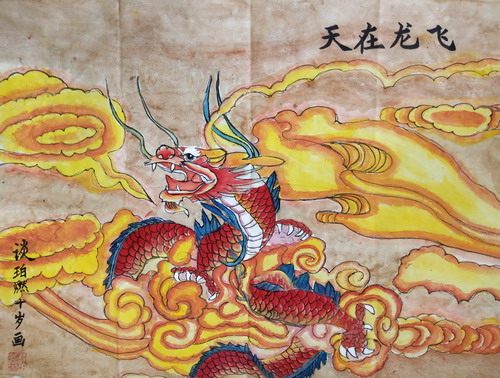 飞龙在天
谈珀燃十岁画